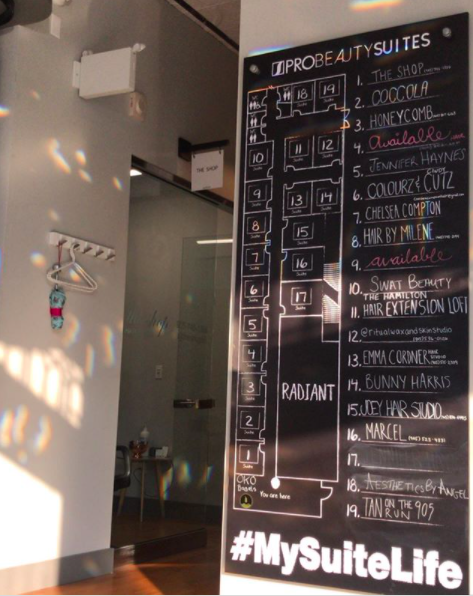 PROBEAUTYSUITES
1. THE SHOP
2. COCCOLA
3. HONEYCOMB
4. available
5. JENNIFER HAYNES
6. COLOURZ & CUTZ
7. CHELSEA COMPTON
8. HAIR BY MILENE
9. available
10. SWAT BEAUTY
11. THE HAMILTON HAIR EXTENSION LOFT
12. @ritualwaxandskinstudio
13. EMMA CORDNER
14. BUNNY HARRIS
15. JOEY HAIR STUDIO
16. MARCEL
17.
18. AESTHETICS BY ANGEL
19. TAN ON THE RUN 905
18
19
10
11
12
9
13
14
8
15
7
16
6
17
5
4
3
RADIANT
2
1
You are here
#MySuiteLife
THE SHOP